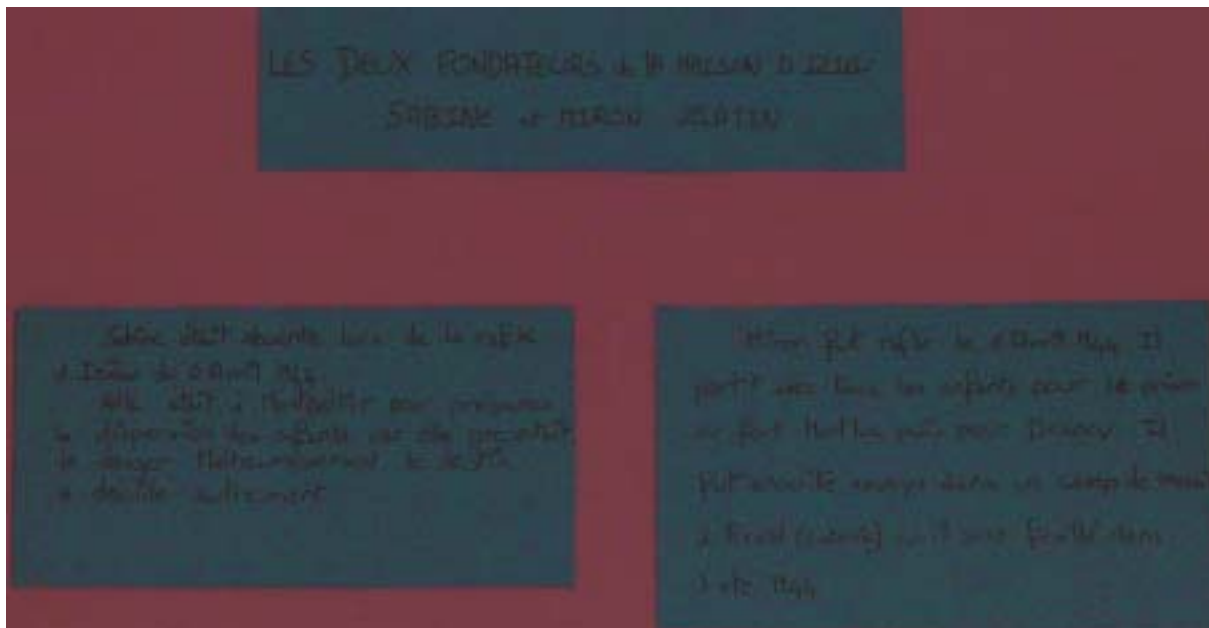 LES DEUX FONDATEURS de LA MAISON D'IZIEU
SABINE et MIRON ZLATIN
Sabine était absente lors de la rafle
d'Izieu du 6 Avril 1944.
Elle était à Montpellier pour préparer
la dispersion des enfants car elle pressentait
le danger. Malheureusement le destin
a décidé autrement
Miron fut raflé le 6 Avril 1944. Il
partit avec tous les enfants pour la prison
de fort Montluc puis pour Drancy. Il
fut ensuite envoyé dans un camp de travail
à Reval (Estonie) où il sera fusillé dans
l'été 1944